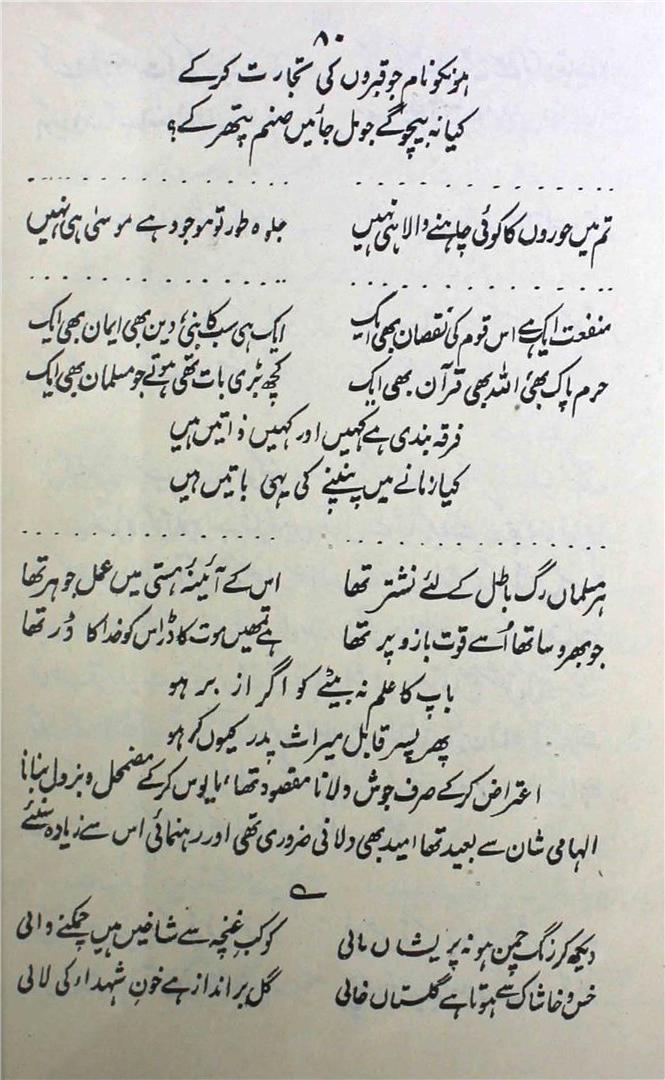 ۸۰
ہو نکو نام جو قبروں کی تجارت کر کے
کیا نہ بیچو گے جو مل جائیں صنم پتھر کے؟
تم میں حوروں کا کوئی چاہنے والا ہی نہیں جلوہ طور تو موجود ہے موسیٰ ہی نہیں
منفعت ایک ہے اس قوم کی نقصان بھی ایک ایک ہی سب کا نبیؐ دین بھی ایمان بھی ایک
حرم پاک بھی اللہ بھی قرآن بھی ایک کچھ بڑی بات تھی ہوتے جو مسلمان بھی ایک
فرقہ بندی ہے کہیں اور کہیں ذاتیں ہیں
کیا زمانے میں پنپنے کی یہی باتیں ہیں
ہر مسلماں رگ باطل کے لئے نشتر تھا اس کے آئینۂ ہستی میں عمل جوہر تھا
جو بھروسا تھا اُسے قوت بازو پر تھا ہے تمھیں موت کا ڈر اس کو خدا کا ڈر تھا
باپ کا علم نہ بیٹے کو اگر از بر ہو
پھر پسر قابل میراث پدر کیوں کر ہو
اعتراض کر کے صرف جوش دلانا مقصود تھا، مایوس کر کے مضمحل و بزدل بنانا
الہامی شان سے بعید تھا امید بھی دلانی ضروری تھی اور رہنمائی اس سے زیادہ سنئے
دیکھ کر رنگ چمن ہو نہ پریشاں مالی کوکب غنچہ سے شاخیں ہیں چمکنے والی
خس و خاشاک سے ہوتا ہے گلستاں خالی گل بر انداز ہے خونِ شہداء کی لالی